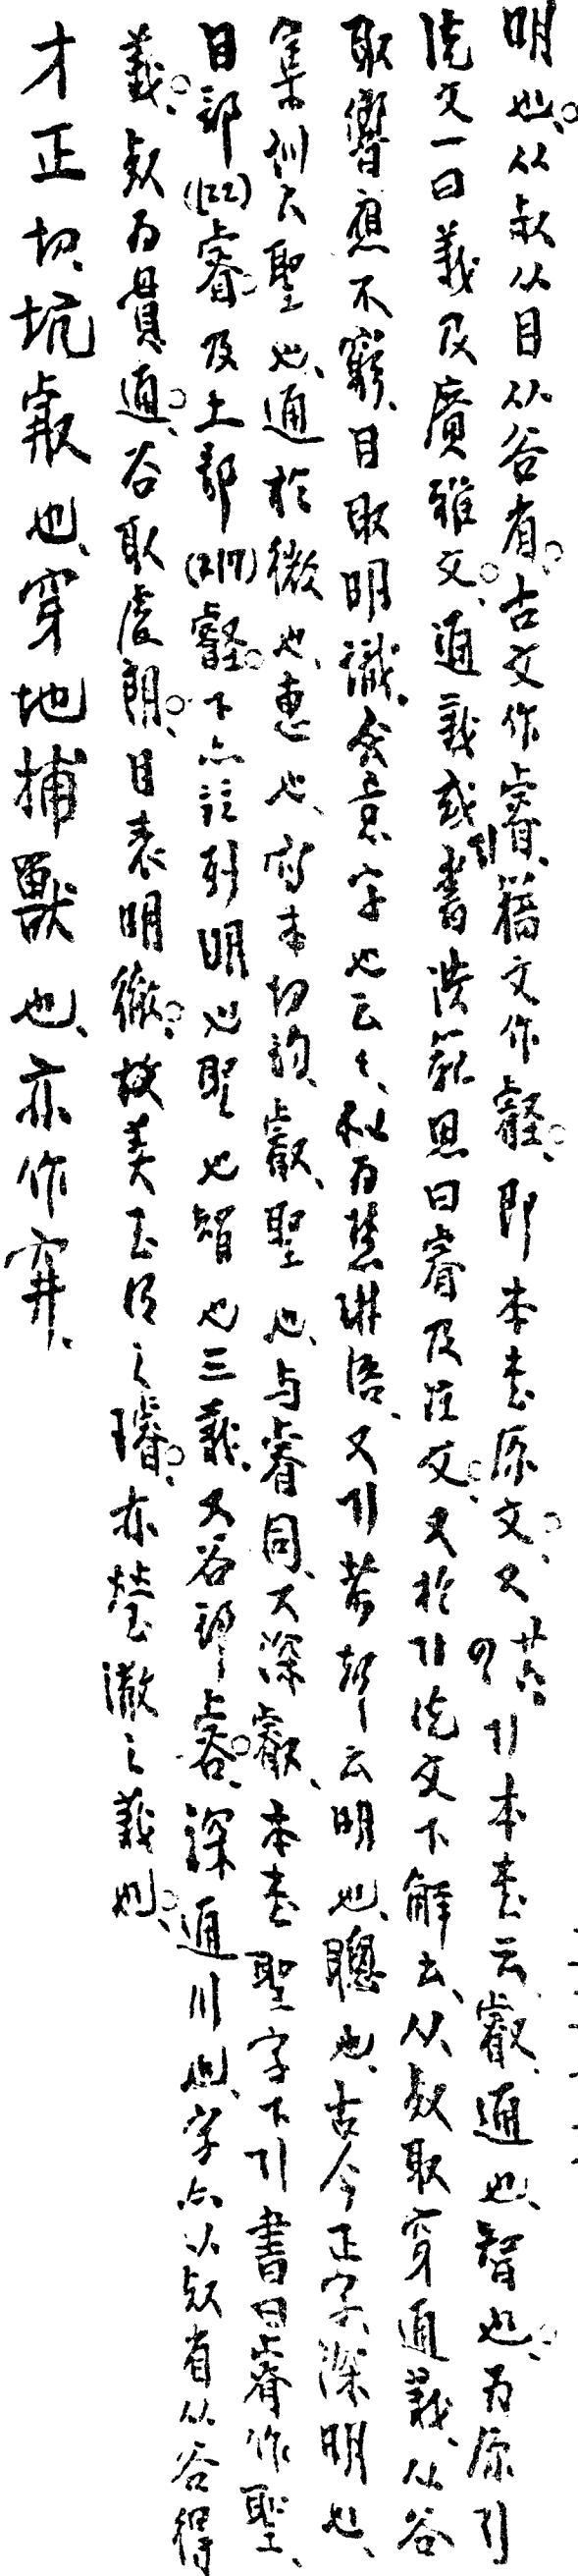 明也。从𣦼从目从谷省。古文作睿、籀文作壡。即本書原文。又 共引本書云、叡、通也、智也。为原引
説文一曰義及廣雅文。通義或引書洪範思曰睿及注文。又於引説文下解云、从𣦼取穿通義、从谷
取響應不窮、目取明識。會意字也云々、似为慧琳語、又引蒼頡云明也、聰也、古今正字、深明也、
集訓云聖也、通於微也、惠也、 本切韵、叡、聖也、与睿同、又深叡、本書聖字下引書曰睿作聖、
目部(122)睿。及土部(217)壡。下亦註列明也聖也智也三義。又谷部㕡。深通川也、字亦从𣦼省从谷得
義。𣦼为貫通。谷取虛朗。目表明徹。故美玉得之璿。亦瑩澈之義也。
才正切、坑㕡也、穿地捕獸也、亦作穽、